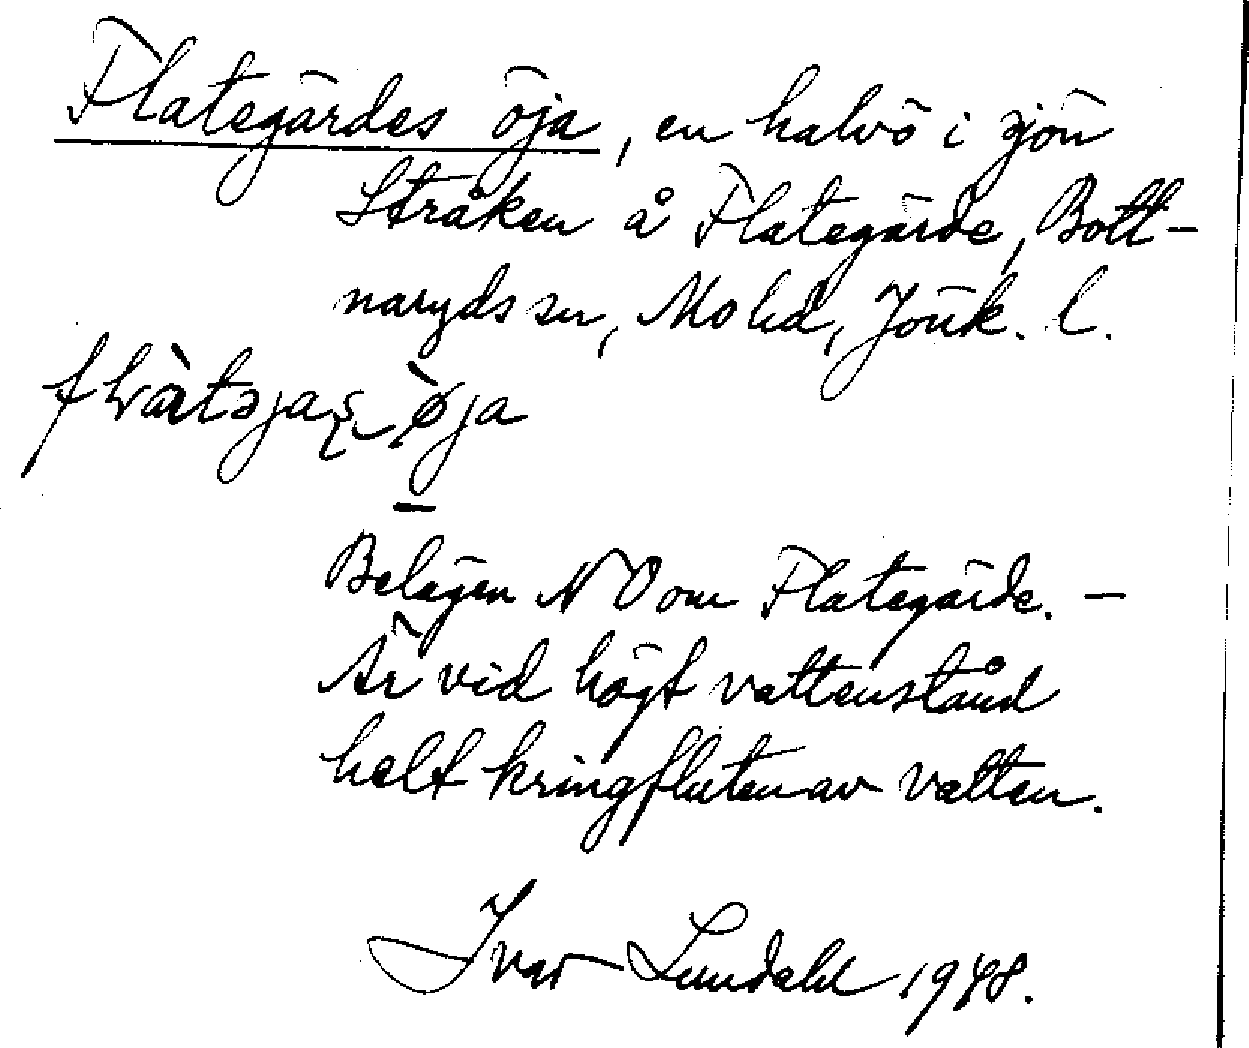 Flategärdes öja, en halvö i sjön
Stråken å Flategärde, Bott-
naryds sn, Mo hd, Jönk. l.
øja
Belägen NO om Flategärde. –
Är vid högt vattenstånd
helt kringfluten av vatten.
Ivar Lundahl 1948.